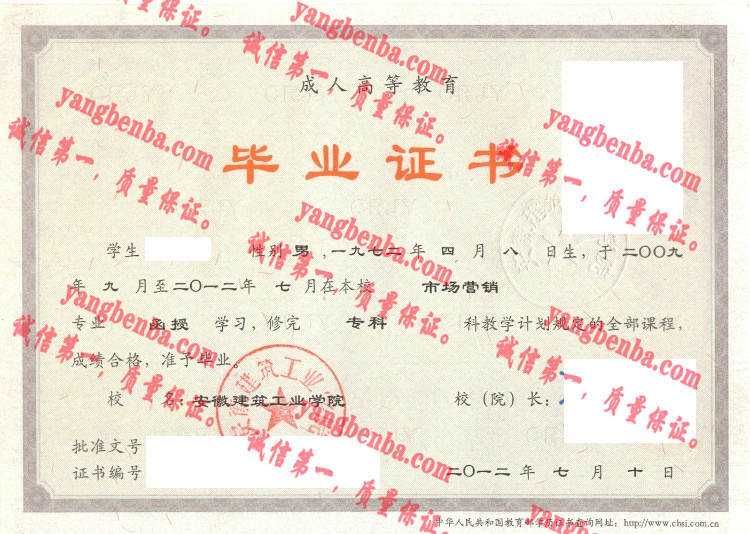 成人高等教育
毕业证书
学生 性别 男 ,一九七二 年 四 月 八 日生, 于 二〇〇九
年 九 月至二〇一二年 七 月在本校 市场营销
专业 函授 学习, 修完 专科 科教学计划规定的全部课程,
成绩合格, 准予毕业。
校 名: 安徽建筑工业学院 校（院）长:
批准文号
证书编号 二〇一二 年 七 月 十 日
中华人民共和国教育部学历证书查询网址: http://www.chsi.com.cn
安徽建筑工业学院
yangbenba.com
诚信第一，质量保证。
yangbenba.com
诚信第一，质量保证。
yangbenba.com
诚信第一，质量保证。
yangbenba.com
诚信第一，质量保证。
yangbenba.com
诚信第一，质量保证。
yangbenba.com
诚信第一，质量保证。
yangbenba.com
诚信第一，质量保证。
yangbenba.com
诚信第一，质量保证。
yangbenba.com